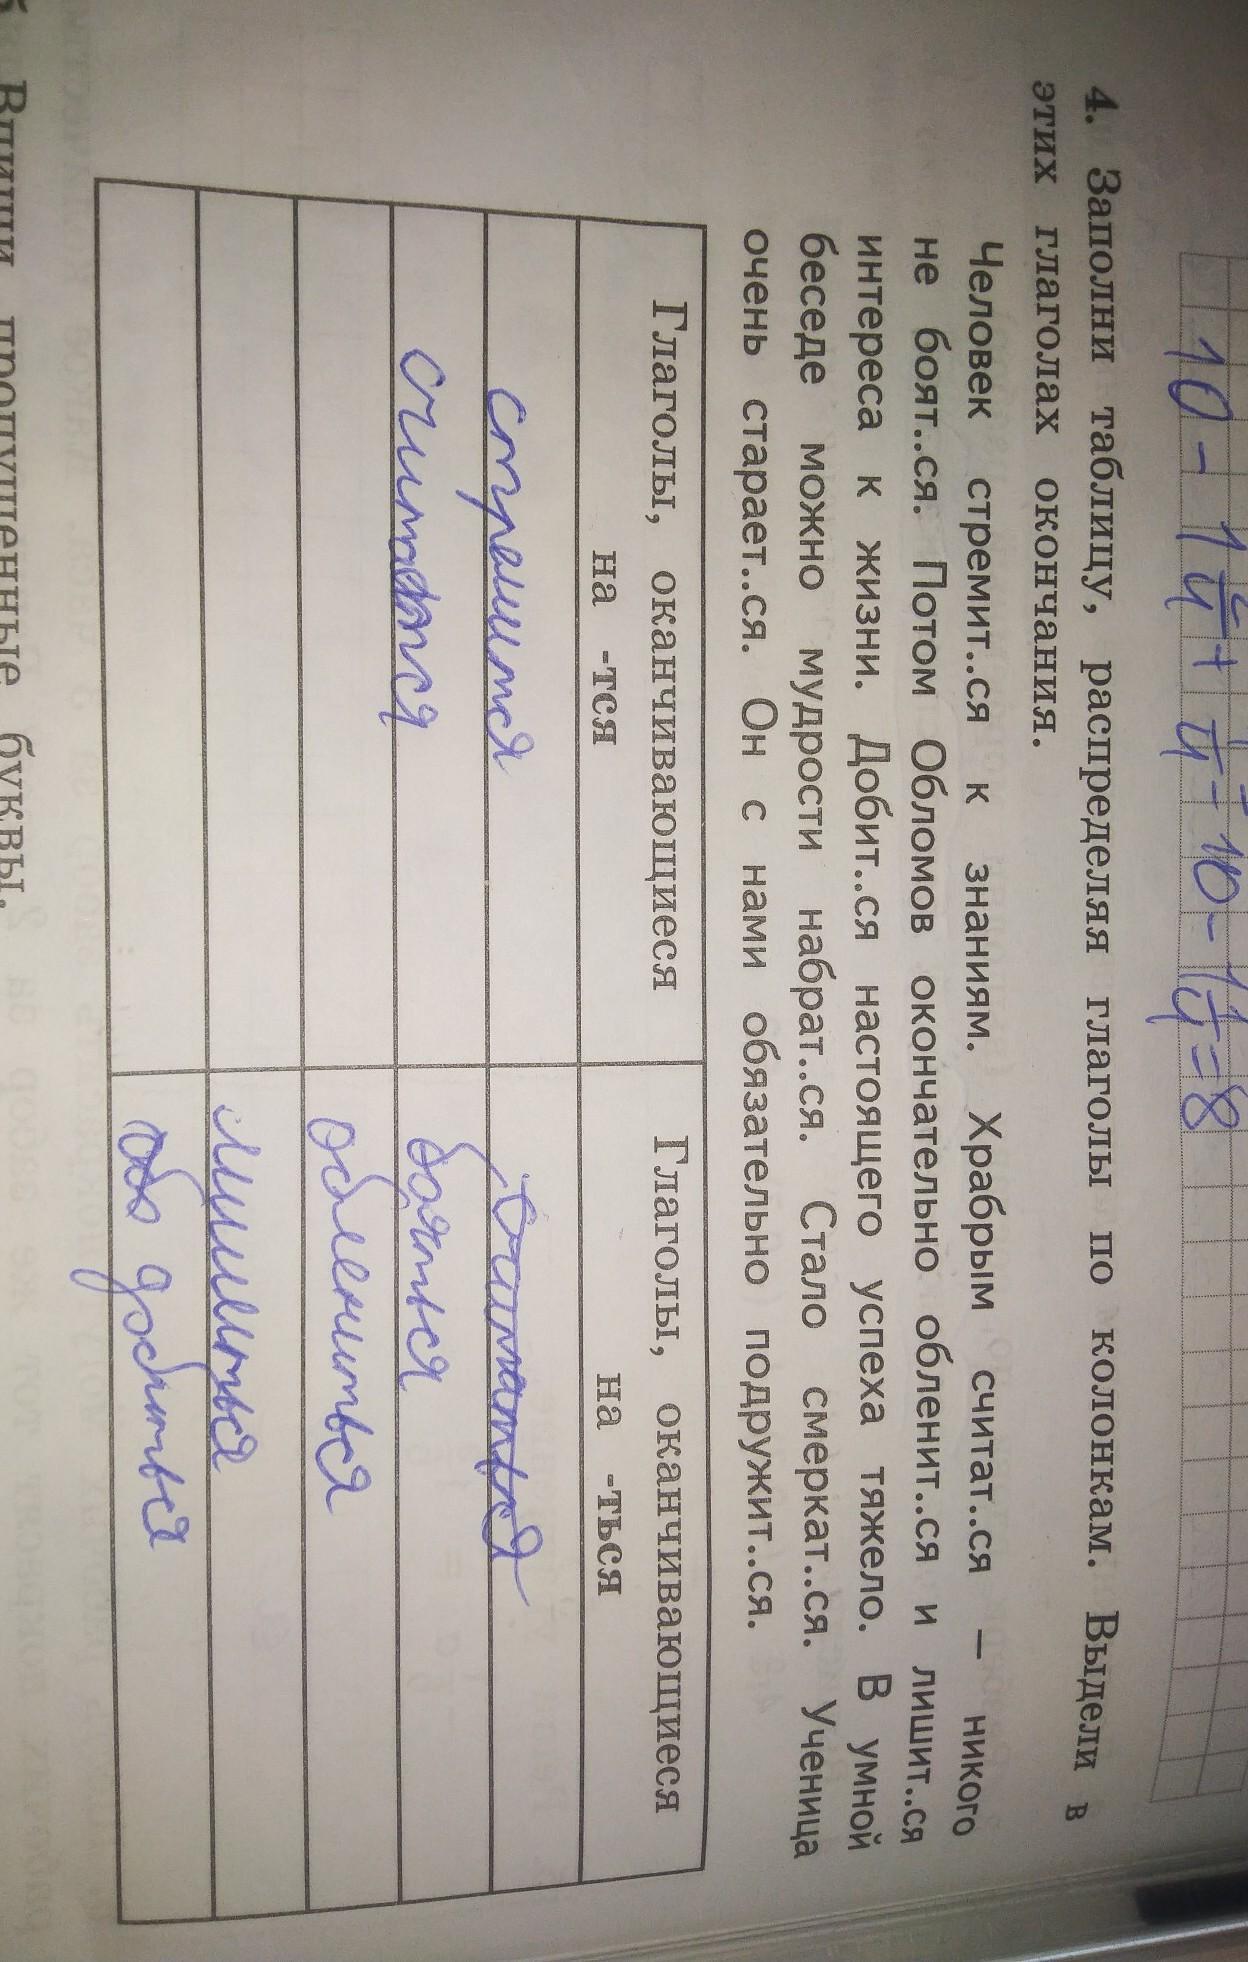 4. Заполни таблицу, распределяя глаголы по колонкам. Выдели в
этих глаголах окончания.
Человек стремит..ся к знаниям. Храбрым считат..ся — никого
не боят..ся. Потом Обломов окончательно обленит..ся и лишит..ся
интереса к жизни. Добит..ся настоящего успеха тяжело. В умной
беседе можно мудрости набрат..ся. Стало смеркат..ся. Ученица
очень старает..ся. Он с нами обязательно подружит..ся.
Глаголы, оканчивающиеся
на -тся
Глаголы, оканчивающиеся
на -ться
стремится
считатся
бояться
облениться
лишиться
добиться
Впиши пропущенные буквы.